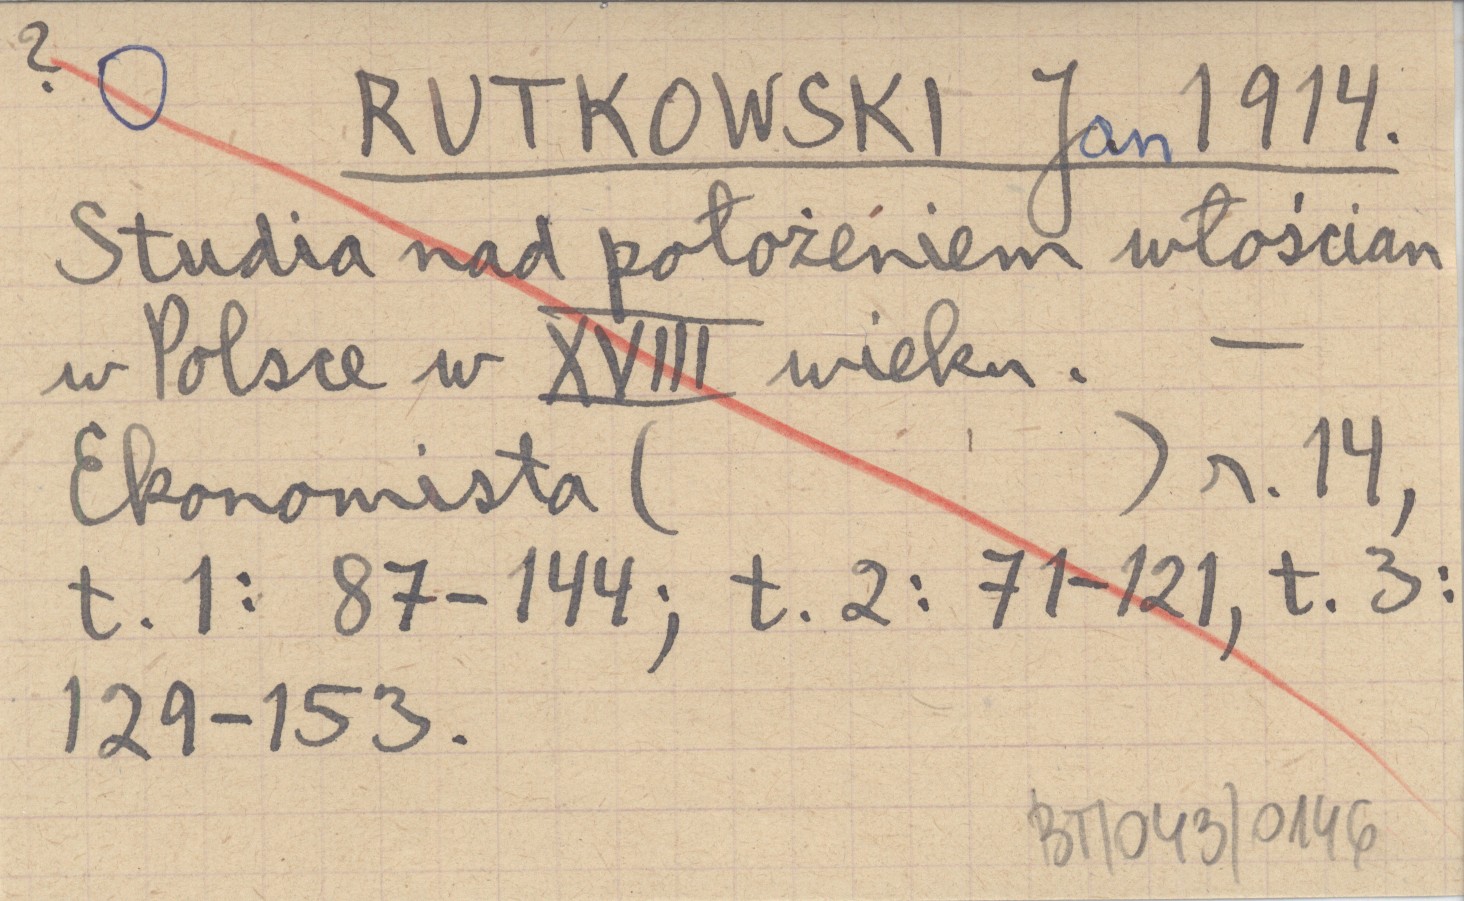 ?
RUTKOWSKI Jan 1914.
Studia nad położeniem włościan
w Polsce w XVIII wieku. —
Ekonomista ( ) r. 14,
t. 1: 87-144; t. 2: 71-121, t. 3:
129-153.
BT/043/0146